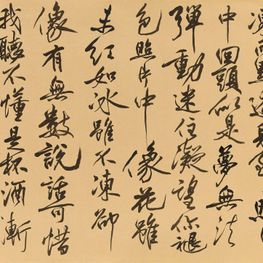 中回頭似是夢無法
彈動迷住凝望你褪
色照片中 像花雖
未紅如冰雖不凍卻
像有無數說話可惜
我聽不懂是杯酒漸